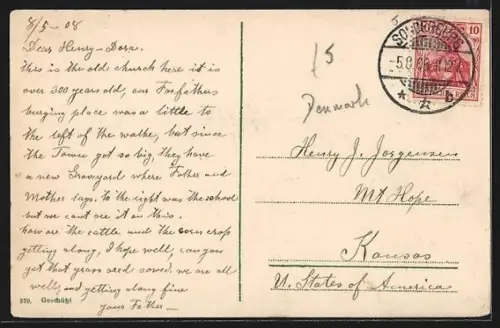 8/5-08
Dear Henry-Dora.
this is the old church here it is
over 300 years old, our Forfathers
burging place was a little to
the left of the walke, but since
the Town got so big, they have
a new Graveyard where Father and
Mother lays. to the right was the school
but we cant see it on this.
how are the cattle and the corn crop
getting along, I hope well, can you
get that grass seed sowed. we are all
well, and getting along fine
your Father-
370. Geschützt
SONDERBURG
-5.8.08.
10
Denmark
Henry J. Jorgensen
Mt Hope
Kansas
U. States of America